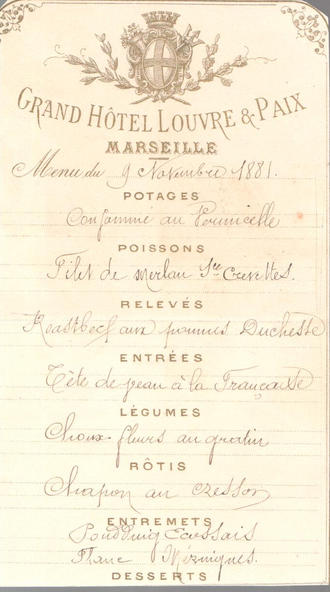 GRAND HÔTEL LOUVRE & PAIX
MARSEILLE
Menu du 9 Novembre 1881.
POTAGES
Consommé au Vermicelle
POISSONS
Filet de merlan Sce Crevettes.
RELEVÉS
Roastbeef aux pommes Duchesse
ENTRÉES
Tête de veau à la Française
LÉGUMES
Choux-fleurs au gratin
RÔTIS
Chapon au cresson
ENTREMETS
Poudding Ecossais
Flanc
DESSERTS